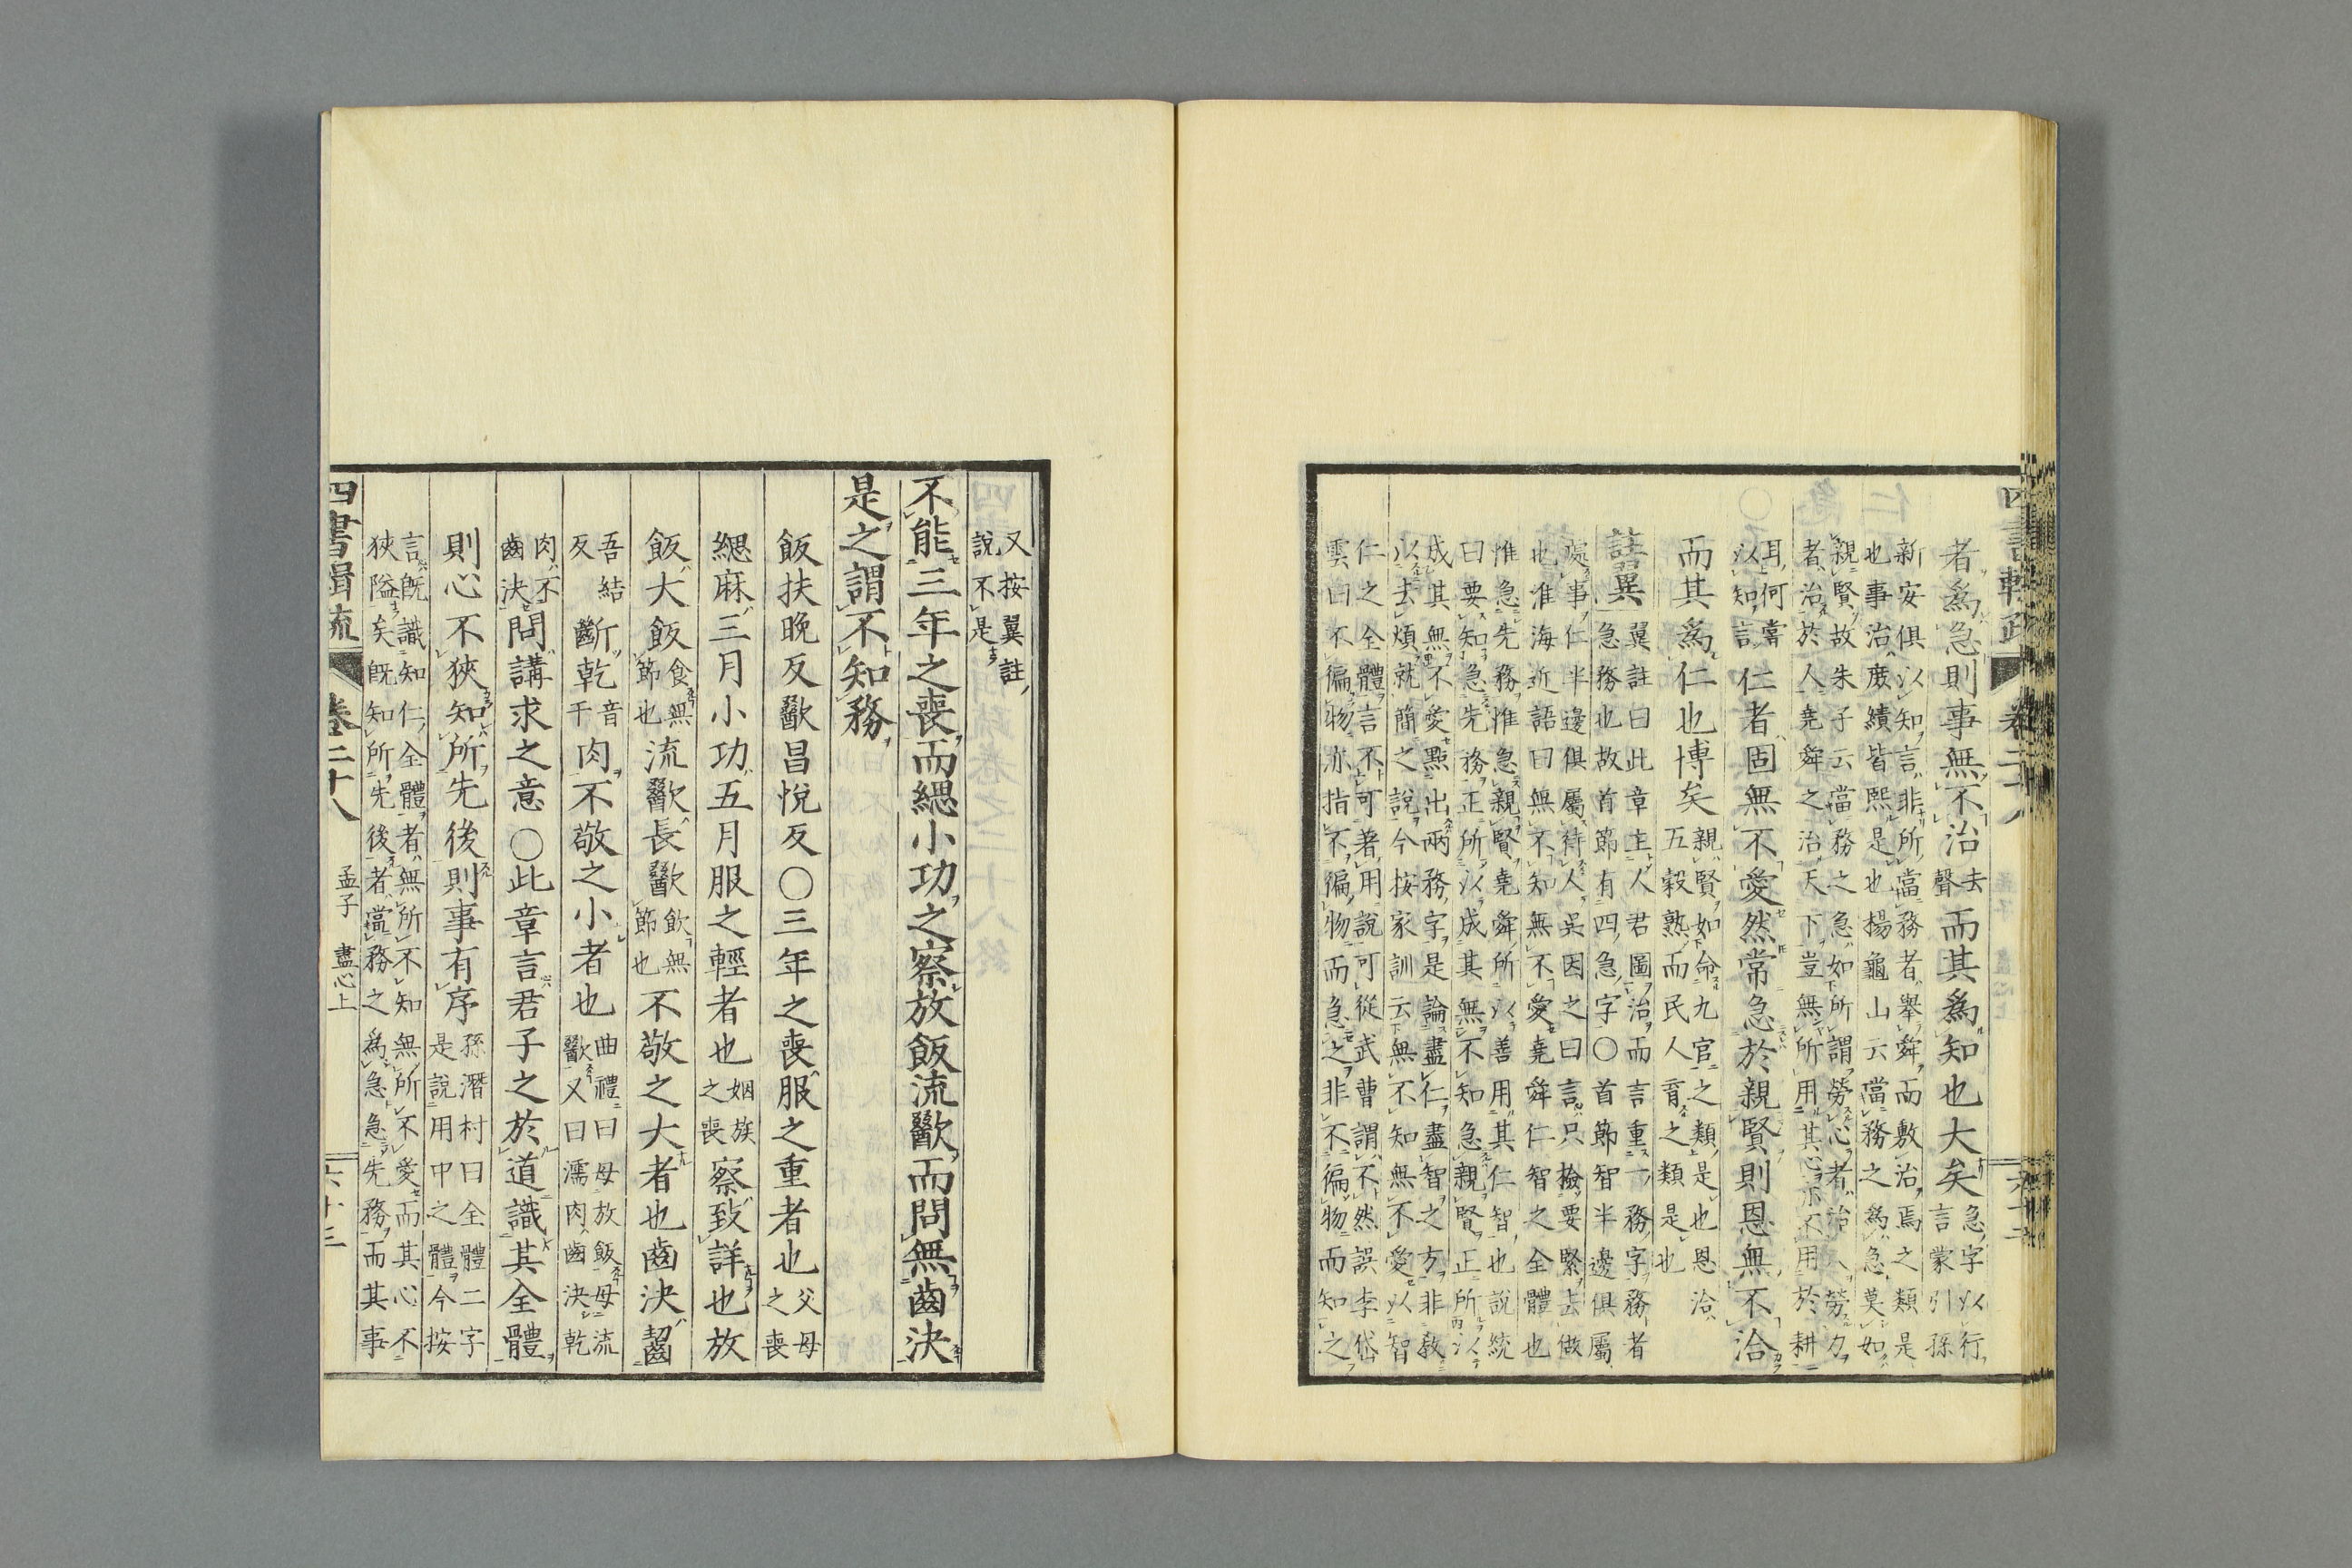 者爲急則事無不治去聲而其爲知也大矣急字以行言蒙引孫
新安俱以知言非所當務者舉舜而敷治焉之類是
也事治庶績皆熙是也楊龜山云當務之爲急莫如
親賢故朱子云當務之急如所謂勞心者治人勞力
者治於人堯舜之治天下豈無所用其心亦不用於耕
耳何嘗以知言仁者固無不愛然常急於親賢則恩無不洽
而其爲仁也博矣親賢如命九官之類是也恩洽五穀熟而民人育之類是也
註翼翼註曰此章主人君圖治而言重一務字務者急務也故首節有四急字〇首節智半邊俱屬
處事仁半邊俱屬待人吳因之曰言只撿要緊去做
也淮海近語曰無不知無不愛堯舜仁智之全體也
惟急先務惟急親賢堯舜所以善用其仁智也說統
曰要知急先務正所以成其無不知急親賢正所以
成其無不愛點出兩務字是論盡仁盡智之方非敎
以去煩就簡之說今按家訓云無不知無不愛以智
仁之全體言不可著用說可從武曹謂不然誤李岱
雲曰不徧物亦指不徧物而急之非不徧物而知之
四書輯疏 卷二十八
又按翼註
說不是
不能三年之喪而緦小功之察放飯流歠而問無齒決
是之謂不知務
飯扶晚反歠昌悅反〇三年之喪服之重者也父母之喪
緦麻三月小功五月服之輕者也姻族之喪察致詳也放
飯大飯食無節也流歠長歠飲無節也不敬之大者也齒決齧
吾結反斷乾音干肉不敬之小者也曲禮曰母放飯母流歠又曰濡肉齒決乾
肉不齒決問講求之意〇此章言君子之於道識其全體
則心不狹知所先後則事有序孫潛村曰全體二字是說用中之體今按
言既識知仁全體者無所不知無所不愛而其心不
狹隘矣既知所先後者當務之爲急急先務而其事
四書輯疏 卷二十八 孟子 盡心上 六十三